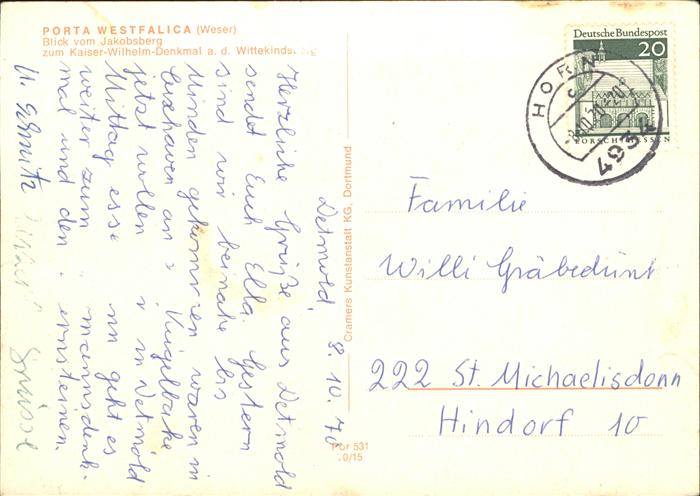 PORTA WESTFALICA (Weser)
Blick vom Jakobsberg
zum Kaiser-Wilhelm-Denkmal a. d.
Detmold, 8. 10. 70
Herzliche Grüße aus Detmold
sendet Euch Ella. Gestern
sind wir beinahe bis
Minden gekommen waren in
Cuxhaven an Kugelbake
jetzt wollen in Detmold
Mittag esse nn geht es
weiter zum mannsdenk-
mal und den ernsteinen.
U. Schmitz
Cramers Kunstanstalt KG, Dortmund
Por 531
0/15
Deutsche Bundespost
20
LORSCH/HESSEN
HORN
4934
Familie
Willi Gräbedünt
222 St. Michaelisdonn
Hindorf 10